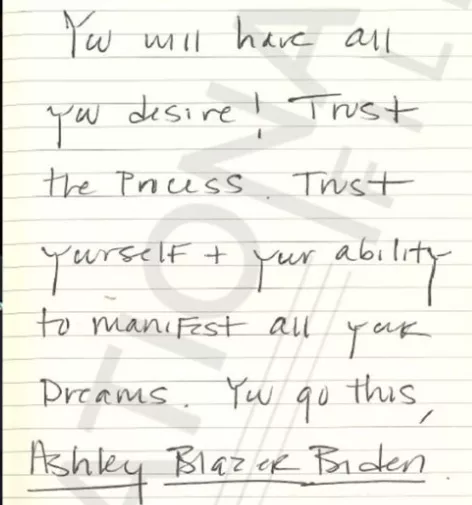 You will have all
you desire! Trust
the Process. Trust
yourself + your ability
to manifest all your
Dreams. You go this,
Ashley Blazer Biden.